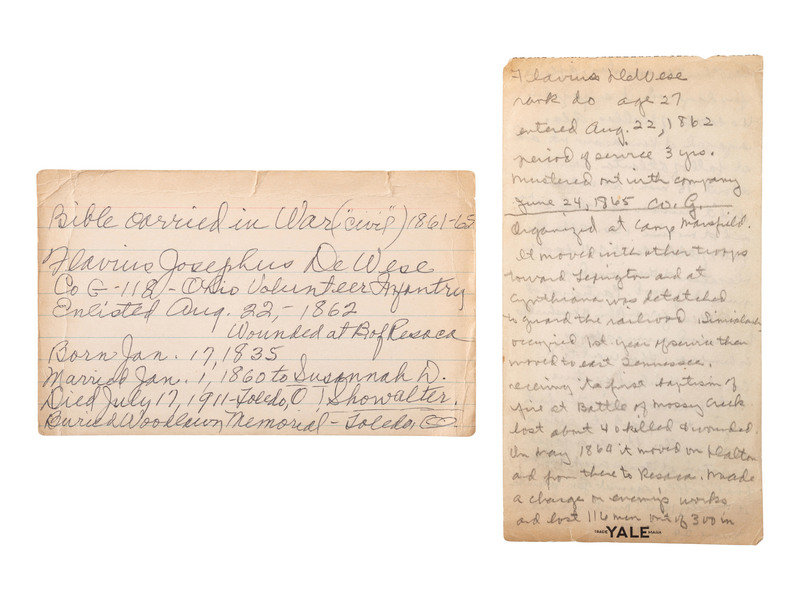 Bible carried in War ("Civil") 1861-65
Flavius Josephus DeWese
Co G - 118 - Ohio Volunteer Infantry
Enlisted Aug. 22, - 1862
Wounded at B of Resaca
Born Jan. 17, 1835
Married Jan. 1, 1860 to Susannah D.
Died July 17, 1911 - Toledo, O Showalter.
Buried Woodlawn Memorial - Toledo, O.
Flavius DeWese
rank do age 27
entered Aug. 22, 1862
period of service 3 yrs.
Mustered out with company
June 24, 1865 Co. G.
Organized at Camp Mansfield.
It moved with other troops
toward Lexington and at
Cynthiana was detatched
to guard the railroad Similarly
occupied 1st year of service then
moved to east Tennessee,
receiving its first baptism of
fire at Battle of Mossy Creek
lost about 40 killed & wounded
In May 1864 it moved on Dalton
and from there to Resaca. Made
a charge on enemy's works
and lost 116 men out of 300 in
TRADE YALE MARK